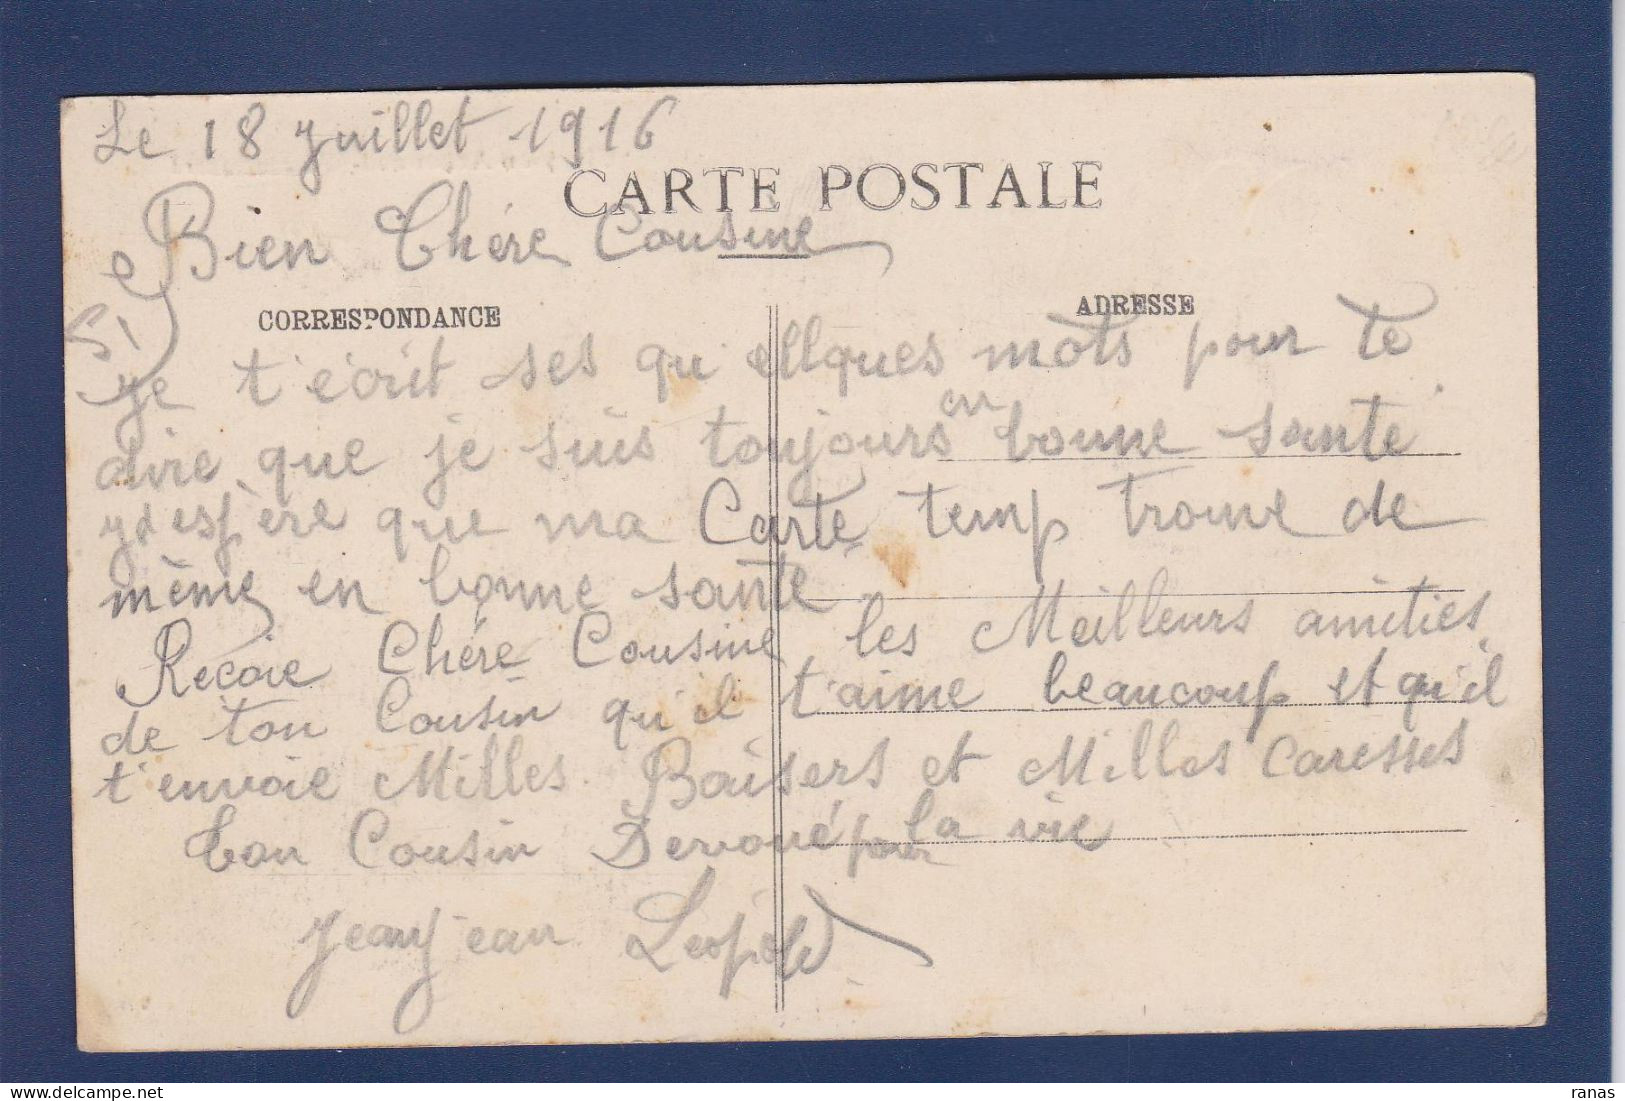 Le 18 Juillet 1916
CARTE POSTALE
Bien Chére Cousine
CORRESPONDANCE
ADRESSE
Je t'écrit ses qu'ellques mots pour te
dire que je suis toujours en bonne santé
espère que ma Carte temp trouve de
même en bonne santé
Recoie Chére Cousine les Meilleurs amitiés
de ton Cousin qu'il t'aime beaucoup et qu'il
t'envoie Milles Baisers et Milles Caresses
ton Cousin Dervoué pour la vie
Jeanjean Léopold
ranas